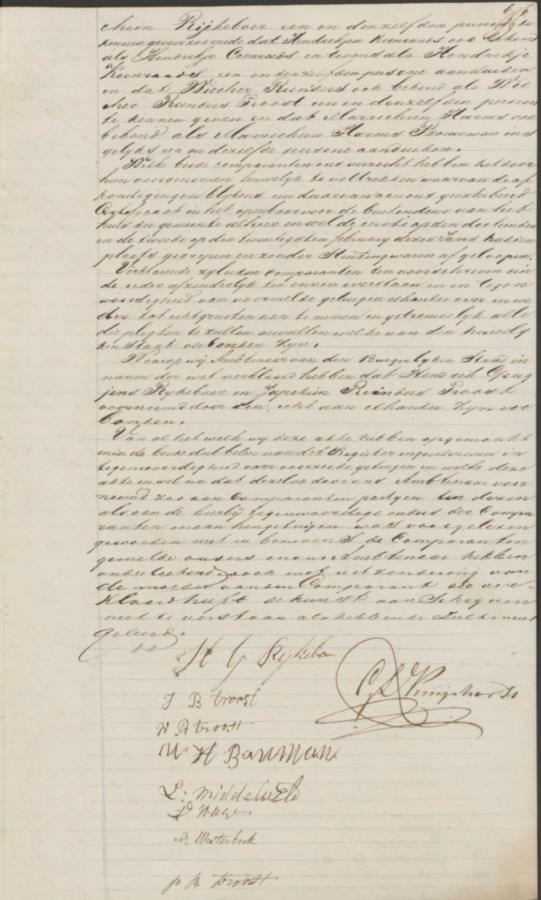 Rijkeboer een en denzelfden persoon
kennen geven zoomede dat Hendrikjen Koenraads ook bekend
als Hendrikje Coenraads en levend als Hendrikje
Koenraads, een en dezelfden persoone aanduiden
en dat Wiecher Reinders ook bekend als Wie
cher Reinders Troost een en denzelfden persoon
te kennen geven en dat Marrechien Harms ook
bekend als Marrechien Harms Bouwman ins
gelijks een en dezelfde persoone aanduiden.
Welke beide comparanten ons verzocht hebben tot het door
hun voorgenomen huwelijk te voltrekken waarvan de af
kondigingen blijkens een daarvan aan ons
Certificaat in het openbaar voor de van het
huis der gemeente alhier en wel de eerste op den
en de tweede op den twintigsten february dezes Jaars hebben
plaats gegrepen en zonder Stuiting waren afgeloopen.
Verklarende zij luiden Comparanten ten voorschreven einde
ieder afzonderlijk ten onzen overstaan en in tegen
woordigheid van voormelde getuigen elkander over en we
der tot echtgenooten aan te nemen en getrouwelijk alle
de pligten te zullen vervullen welke van den huwelij
ken staat verbonden zijn.
Waarop wij Ambtenaar van den Burgerlijken Stand in
naam der wet verklaard hebben dat Hendrik Geug
jens Rijkeboer en Japechien Reinders Troost
voornoemd door den echt aan elkander zijn ver
bonden.
Van al het welk wij deze akte hebben opgemaakt
en in de beide dubbelen van het Register ingeschreven in
tegenwoordigheid van voormelde getuigen en welke deze
akte en wel na dat dezelve door ons Ambtenaar voor
noemd zoo aan Comparanten partijen ten dezen
als aan de hierbij tegenwoordige ouders der Compa
ranten en aan hen getuigen was voorgelezen
geworden met en benevens de Comparanten
gemelde ouders en ons Ambtenaar hebben
onderteekend doch met uitzondering van
de moeder van den Comparant die ver
klaard heeft de kunst van Schrijven
niet te verstaan als hebbende Zulks niet
geleerd.
H G Rijkeboer
J R troost
W R troost
W H Bauman
L: middelveld
Wage
Westerbeek
p R troost